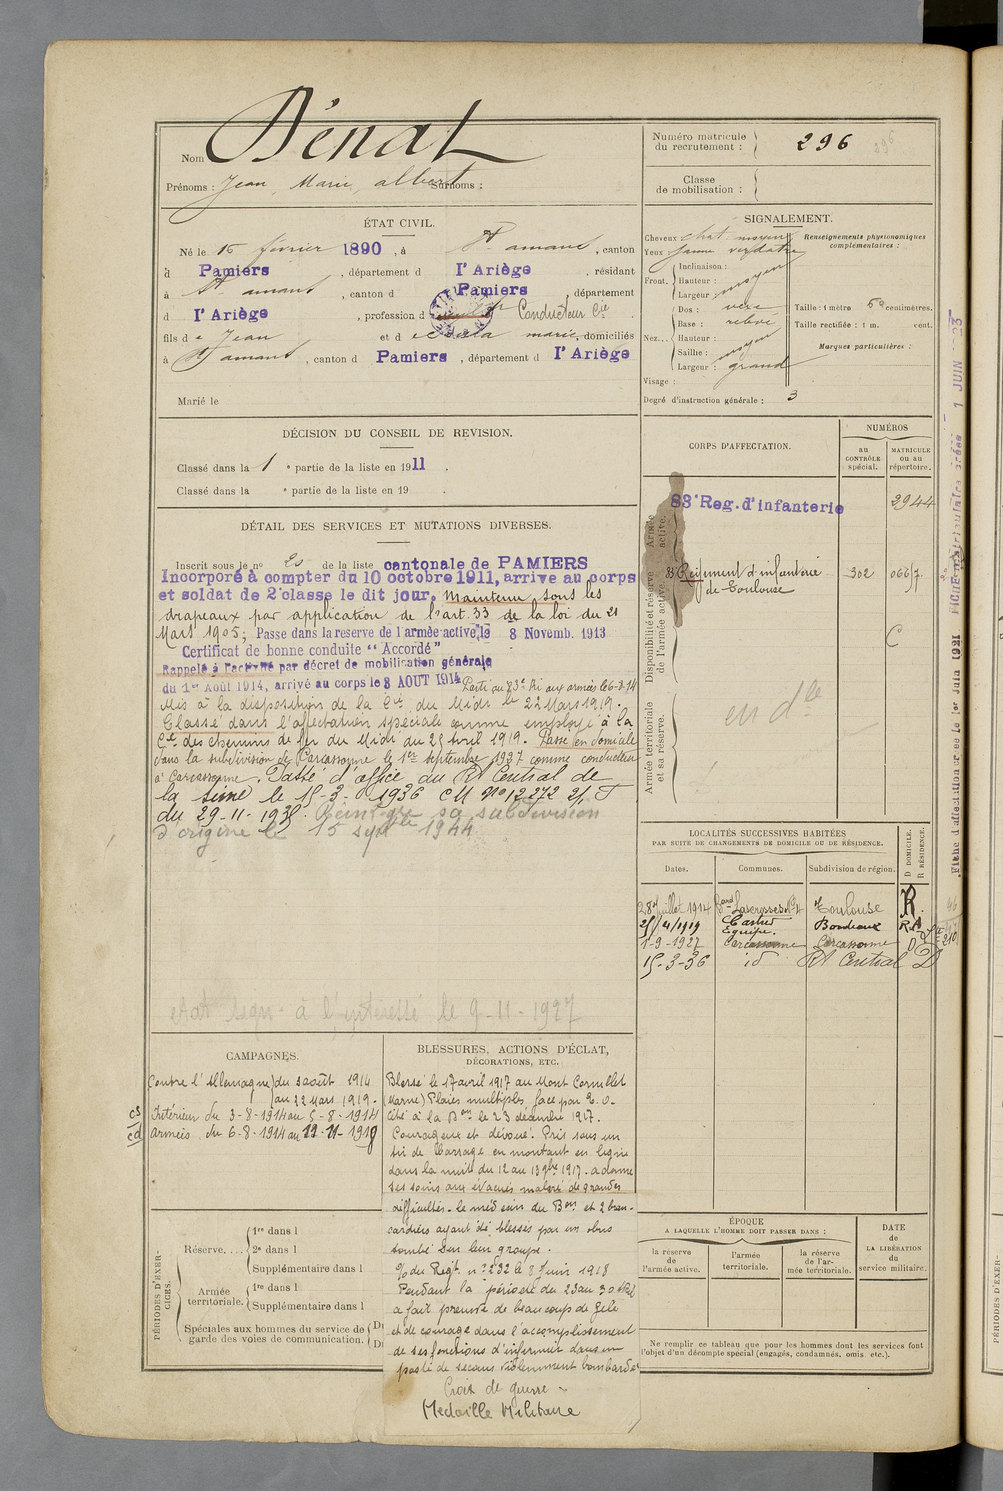 Nom Dénat
Prénoms : Jean, Marie, albert Surnoms :
Numéro matricule du recrutement : 296
296
Classe de mobilisation :
ÉTAT CIVIL.
Né le 15 février 1890, à St amans, canton
d Pamiers, département d l'Ariège, résidant
à St amans, canton d Pamiers, département
d l'Ariège, profession d Conducteur Cie
fils d e Jean et d marie, domiciliés
à St amans, canton d Pamiers, département d l'Ariège
Marié le
SIGNALEMENT.
Cheveux chat. moyen
Yeux : jaune verdâtre
Renseignements physionomiques complémentaires :
Inclinaison :
Front. Hauteur : moyen
Largeur :
Dos :
Base : relevé
Nez... Hauteur :
Saillie : moyen
Largeur : grand
Visage :
Taille : 1 mètre centimètres.
Taille rectifiée : 1 m. cent.
Marques particulières :
Degré d'instruction générale : 3
DÉCISION DU CONSEIL DE REVISION.
Classé dans la 1 e partie de la liste en 1911.
Classé dans la e partie de la liste en 19 .
DÉTAIL DES SERVICES ET MUTATIONS DIVERSES.
Inscrit sous le no 20 de la liste cantonale de PAMIERS
Incorporé à compter du 10 octobre 1911, arrive au corps
et soldat de 2e classe le dit jour. Maintenu sous les
drapeaux par application de l'art. 33 de la loi du 21
Mars 1905; Passe dans la reserve de l'armée active, le 8 Novemb. 1913
Certificat de bonne conduite "Accordé"
Rappelé à l'activité par décret de mobilisation générale
du 1er Août 1914, arrivé au corps le 3 AOUT 1914 Parti au 83e RI aux armées le 6-8-14
Mis à la disposition de la Cie du Midi le 22 Mars 1919.
Classé dans l'affectation spéciale comme employé à la
Cie des chemins de fer du Midi du 25 Avril 1919. Passé en domicile
dans la subdivision de Carcassonne le 1er septembre 1927 comme conducteur
à Carcassonne. Passé d'office au Rt Central de
la Seine le 15-3-1936 CM No 12272 2/T
du 29-11-1935. Réintègre sa subdivision
d'origine le 15 septbre 1944
à l'intéressé le 9-11-1927
CORPS D'AFFECTATION.
NUMÉROS
au CONTRÔLE spécial.
MATRICULE ou au répertoire.
Armée active.
83e Reg. d'infanterie 2944
Disponibilité et réserve de l'armée active.
83e Régiment d'infanterie de Toulouse 302 0667
C
Armée territoriale et sa réserve.
en dle
LOCALITÉS SUCCESSIVES HABITÉES
PAR SUITE DE CHANGEMENTS DE DOMICILE OU DE RÉSIDENCE.
Dates. Communes. Subdivision de région. D DOMICILE. R RÉSIDENCE.
28 Juillet 1914 Toulouse R.
25/4/1919 Bordeaux R.A
1-9-1927 Carcassonne Carcassonne D
15-3-36 id Rt Central D
CAMPAGNES.
Contre l'Allemagne du 3 août 1914
au 22 Mars 1919.
Intérieur du 3-8-1914 au 5-8-1914
Armées du 6-8-1914 au 11-11-1918
CS
CD
BLESSURES, ACTIONS D'ÉCLAT,
DÉCORATIONS, ETC.
Blessé le 17 avril 1917 au Mont Cornillet
(Marne) Plaies multiples face par e. o.
Cité à la Don le 23 décembre 1917.
Courageux et dévoué. Pris sous un
tir de barrage en montant en ligne
dans la nuit du 12 au 13 9bre 1917. a donné
ses soins aux évacués malgré de grandes
difficultés. le médecin du Bon et 2 bran-
cardiers ayant été blessés par un obus
tombé sur leur groupe.
o/ du Regt. no 232 le 8 Juin 1918
Pendant la période du 23 au 30
a fait preuve de beaucoup de zèle
et de courage dans l'accomplissement
de ses fonctions d'infirmier dans un
poste de secours violemment bombardé
Croix de guerre
Médaille Militaire
PÉRIODES D'EXERCICES.
Réserve.... 1re dans l
2e dans l
Supplémentaire dans l
Armée territoriale. 1re dans l
Supplémentaire dans l
Spéciales aux hommes du service de garde des voies de communication.
ÉPOQUE
A LAQUELLE L'HOMME DOIT PASSER DANS :
la réserve de l'armée active.
l'armée territoriale.
la réserve de l'armée territoriale.
DATE DE LA LIBÉRATION du service militaire.
Ne remplir ce tableau que pour les hommes dont les services font
l'objet d'un décompte spécial (engagés, condamnés, omis, etc.).
PÉRIODES D'EXER-